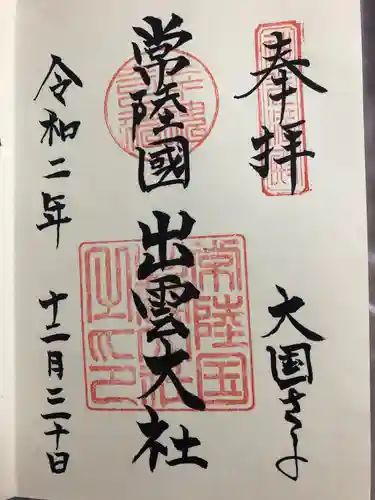 奉拝
大国さま
常陸國出雲大社
令和二年 十二月三十日
常陸国